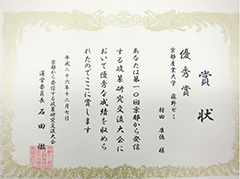 賞状
優秀賞
京都産業大学 藤野ゼミ
村田 康徳 様
あなたは第一〇回京都から発信
する政策研究交流大会に
おいて優秀な成績を収めら
れたのでここに賞します
平成二十六年十二月七日
京都から発信する政策研究交流大会
運営委員長 石田 徹